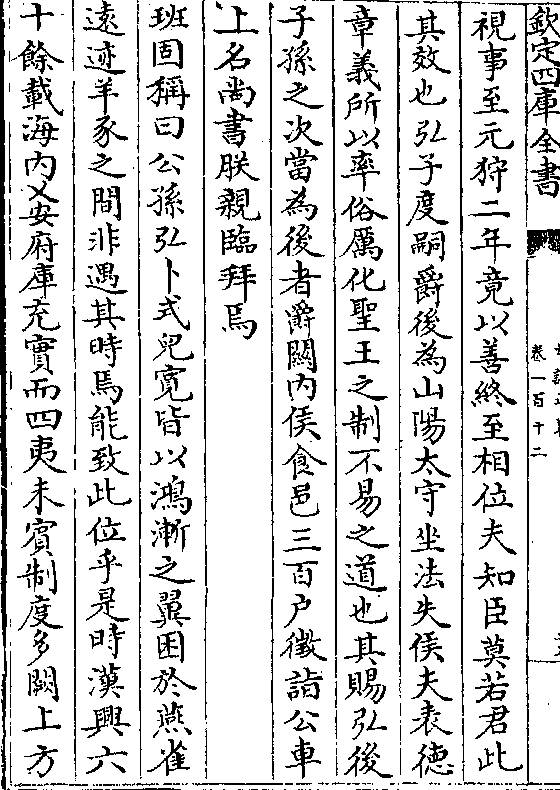 欽定四庫全書
卷一百十二
視事至元狩二年竟以善終至相位夫知臣莫若君此
其效也弘子度嗣爵後為山陽太守坐法失侯夫表德
章義所以率俗厲化聖王之制不易之道也其賜弘後
子孫之次當為後者爵關內侯食邑三百户徵詣公車
上名尚書朕親臨拜焉
班固稱曰公孫弘卜式兒寛皆以鴻漸之翼困於燕雀
逺迹羊豕之間非遇其時焉能致此位乎是時漢興六
十餘載海内乂安府庫充實而四夷未賓制度多闕上方